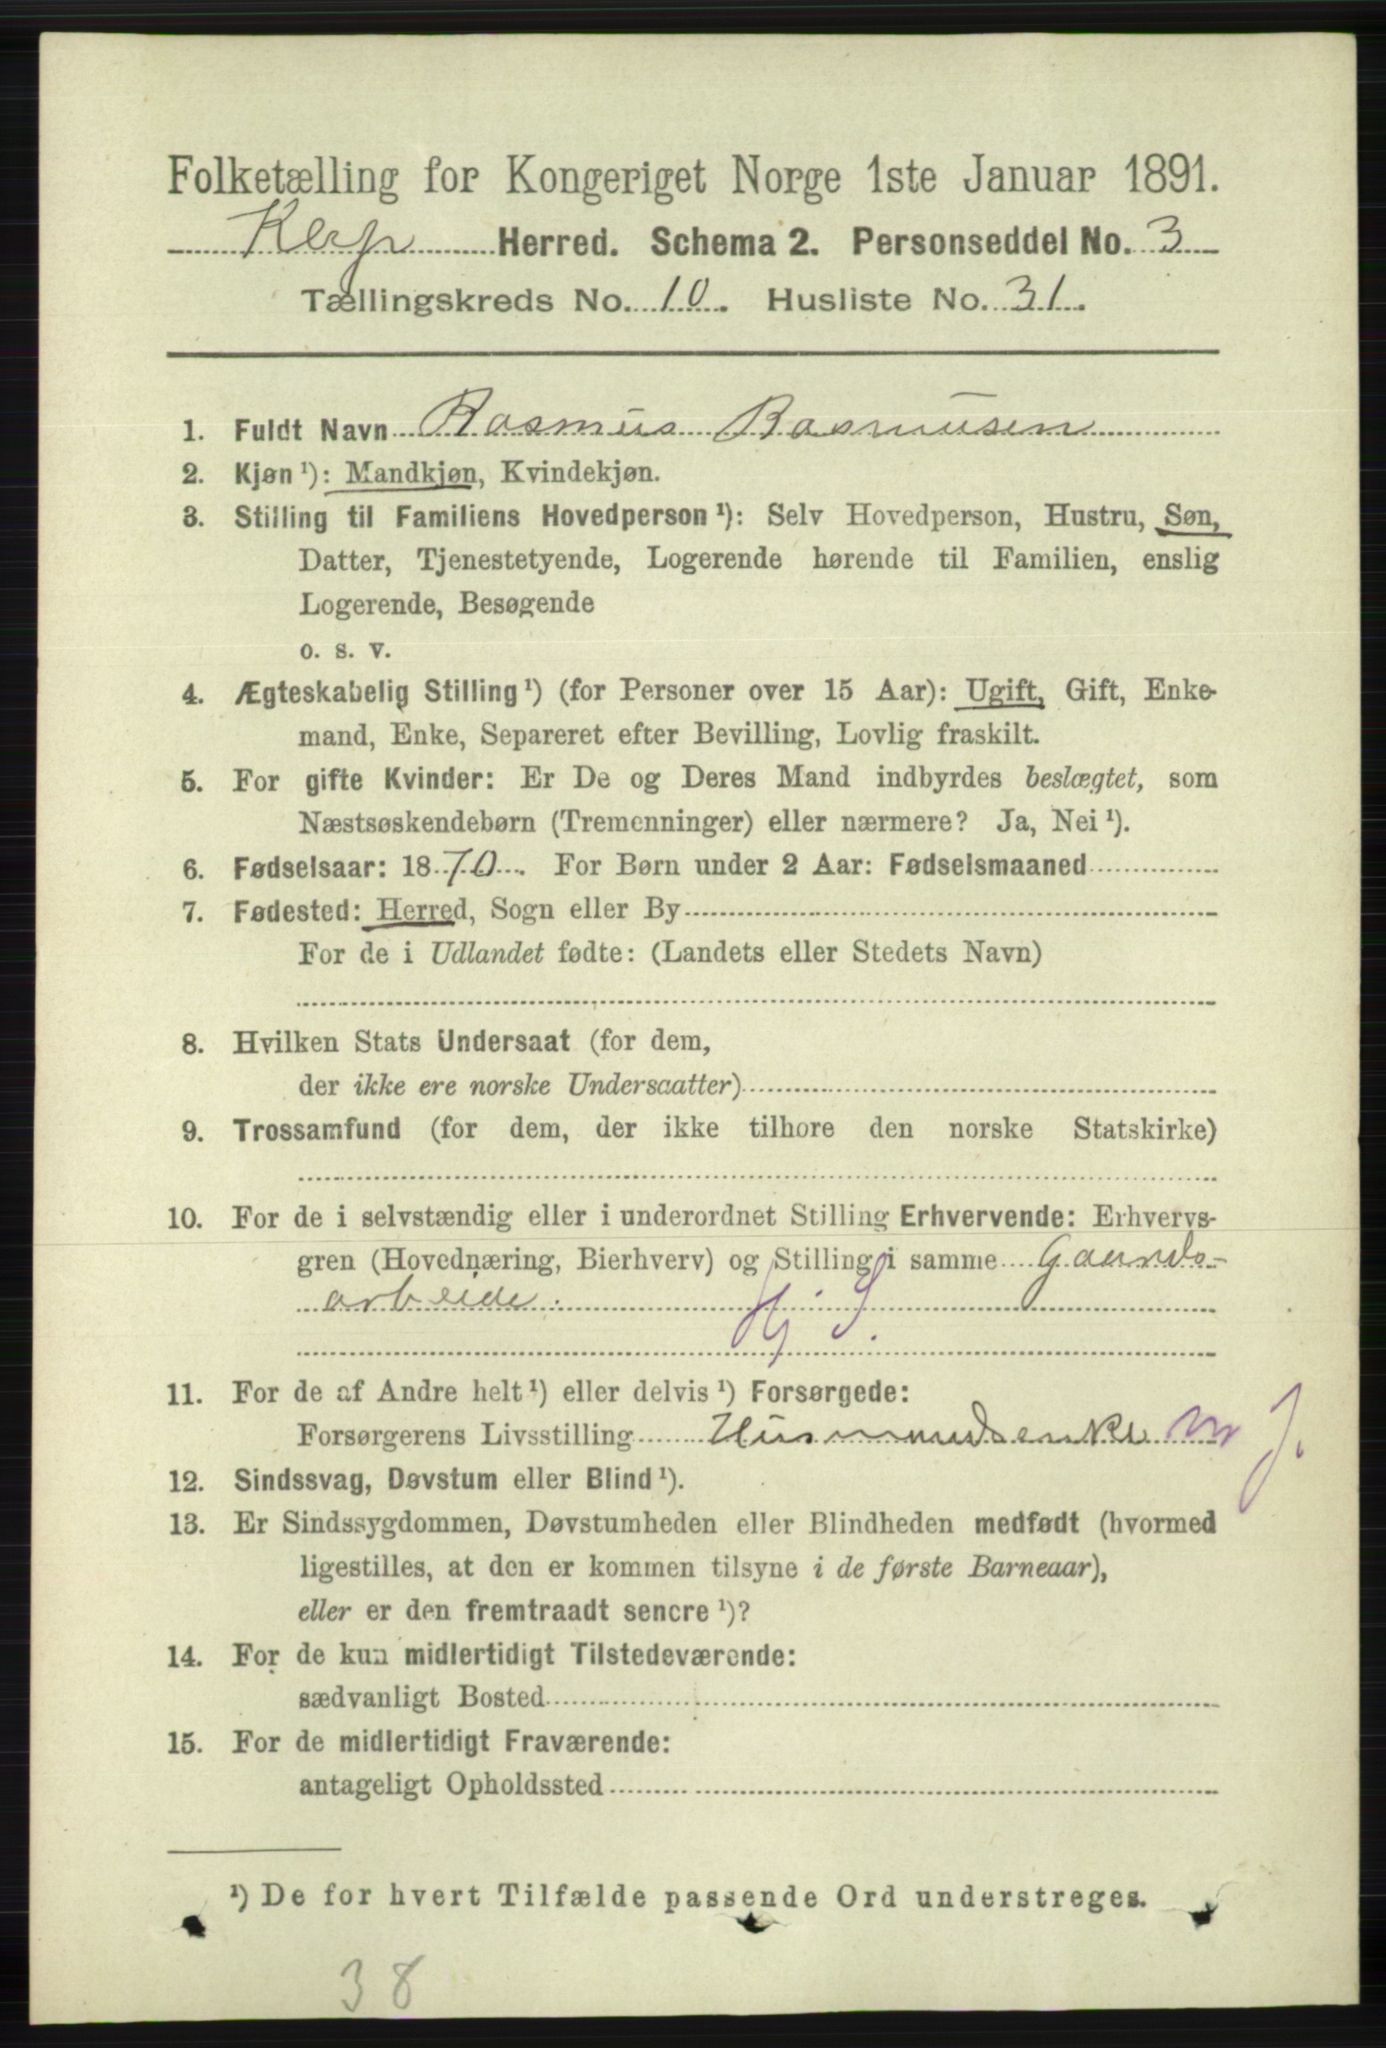 Folketælling for Kongeriget Norge 1ste Januar 1891.
Klep Herred. Schema 2. Personseddel No. 3
Tællingskreds No. 10. Husliste No. 31.
1. Fuldt Navn Rasmus Rasmussen
2. Kjøn ¹): Mandkjøn, Kvindekjøn.
3. Stilling til Familiens Hovedperson ¹): Selv Hovedperson, Hustru, Søn,
Datter, Tjenestetyende, Logerende hørende til Familien, enslig
Logerende, Besøgende
o. s. v.
4. Ægteskabelig Stilling ¹) (for Personer over 15 Aar): Ugift, Gift, Enke-
mand, Enke, Separeret efter Bevilling, Lovlig fraskilt.
5. For gifte Kvinder: Er De og Deres Mand indbyrdes beslægtet, som
Næstsøskendebørn (Tremenninger) eller nærmere? Ja, Nei ¹).
6. Fødselsaar: 1870. For Børn under 2 Aar: Fødselsmaaned
7. Fødested: Herred, Sogn eller By
For de i Udlandet fødte: (Landets eller Stedets Navn)
8. Hvilken Stats Undersaat (for dem,
der ikke ere norske Undersaatter)
9. Trossamfund (for dem, der ikke tilhøre den norske Statskirke)
10. For de i selvstændig eller i underordnet Stilling Erhvervende: Erhvervs-
gren (Hovednæring, Bierhverv) og Stilling i samme Gaards-
arbeide.
Hj. S.
11. For de af Andre helt ¹) eller delvis ¹) Forsørgede:
Forsørgerens Livsstilling Husmandsenke
12. Sindssvag, Døvstum eller Blind ¹).
13. Er Sindssygdommen, Døvstumheden eller Blindheden medfødt (hvormed
ligestilles, at den er kommen tilsyne i de første Barneaar),
eller er den fremtraadt senere ¹)?
14. For de kun midlertidigt Tilstedeværende:
sædvanligt Bosted
15. For de midlertidigt Fraværende:
antageligt Opholdssted
¹) De for hvert Tilfælde passende Ord understreges.
38